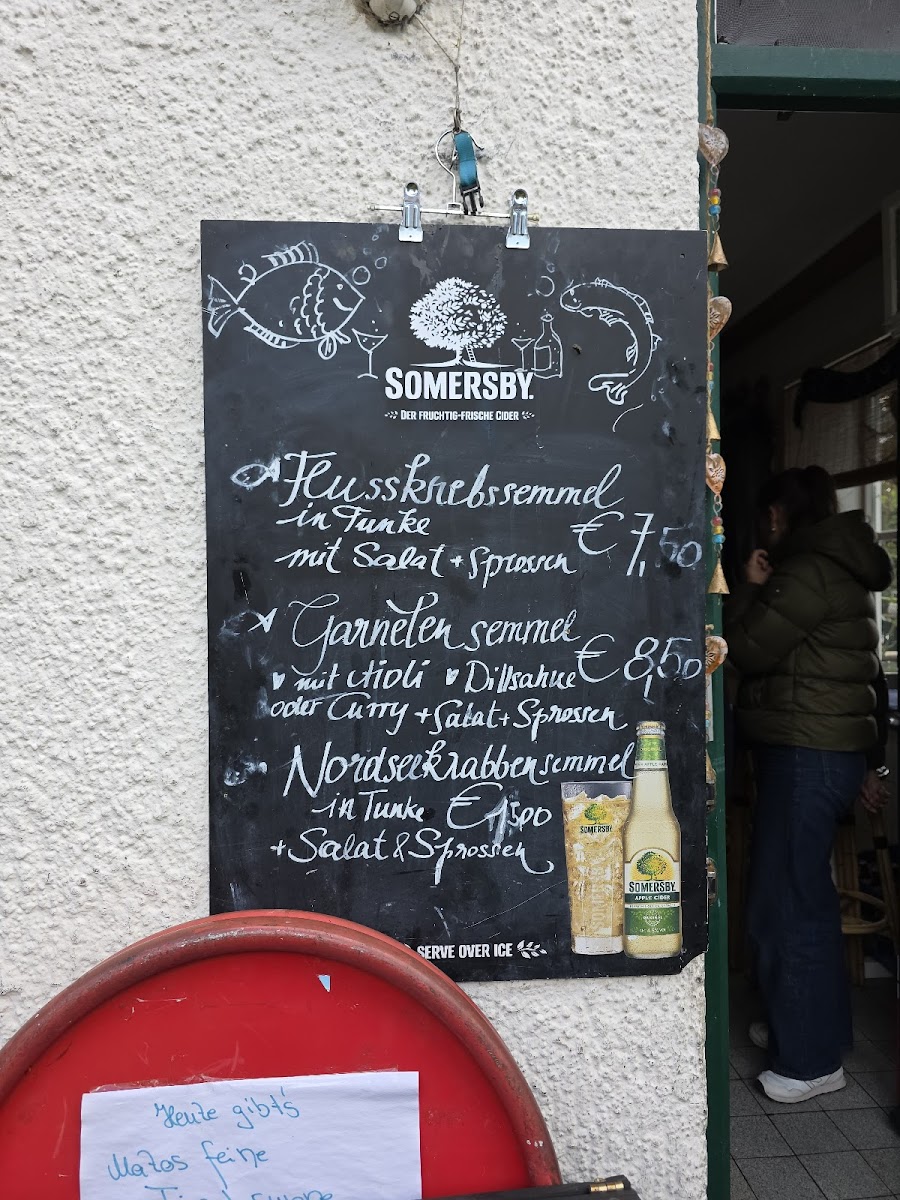 SOMERSBY.
DER FRUCHTIG-FRISCHE CIDER
Flusskrebssemmel
in Tunke
mit Salat + Sprossen € 7,50
Garnelen semmel
mit Aioli Dillsahne € 8,50
oder Curry + Salat + Sprossen
Nordseekrabbensemmel
in Tunke € 1500
+ Salat & Sprossen
SOMERSBY
SOMERSBY
APPLE CIDER
SERVE OVER ICE
Heute gibt's
Mazos feine